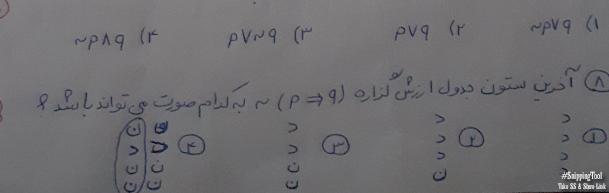 ۱) ~p∨q ۲) p∨q ۳) p∨~q ۴) ~p∧q
۸) آخرین ستون جدول ارزش گزاره ~(p⇒q) به کدام صورت می تواند باشد؟
۱) د ۲) د ۳) د ۴) ن
د د د د
د ن ن
ن ن ن ن
#SnippingTool
Take SS & Share Link